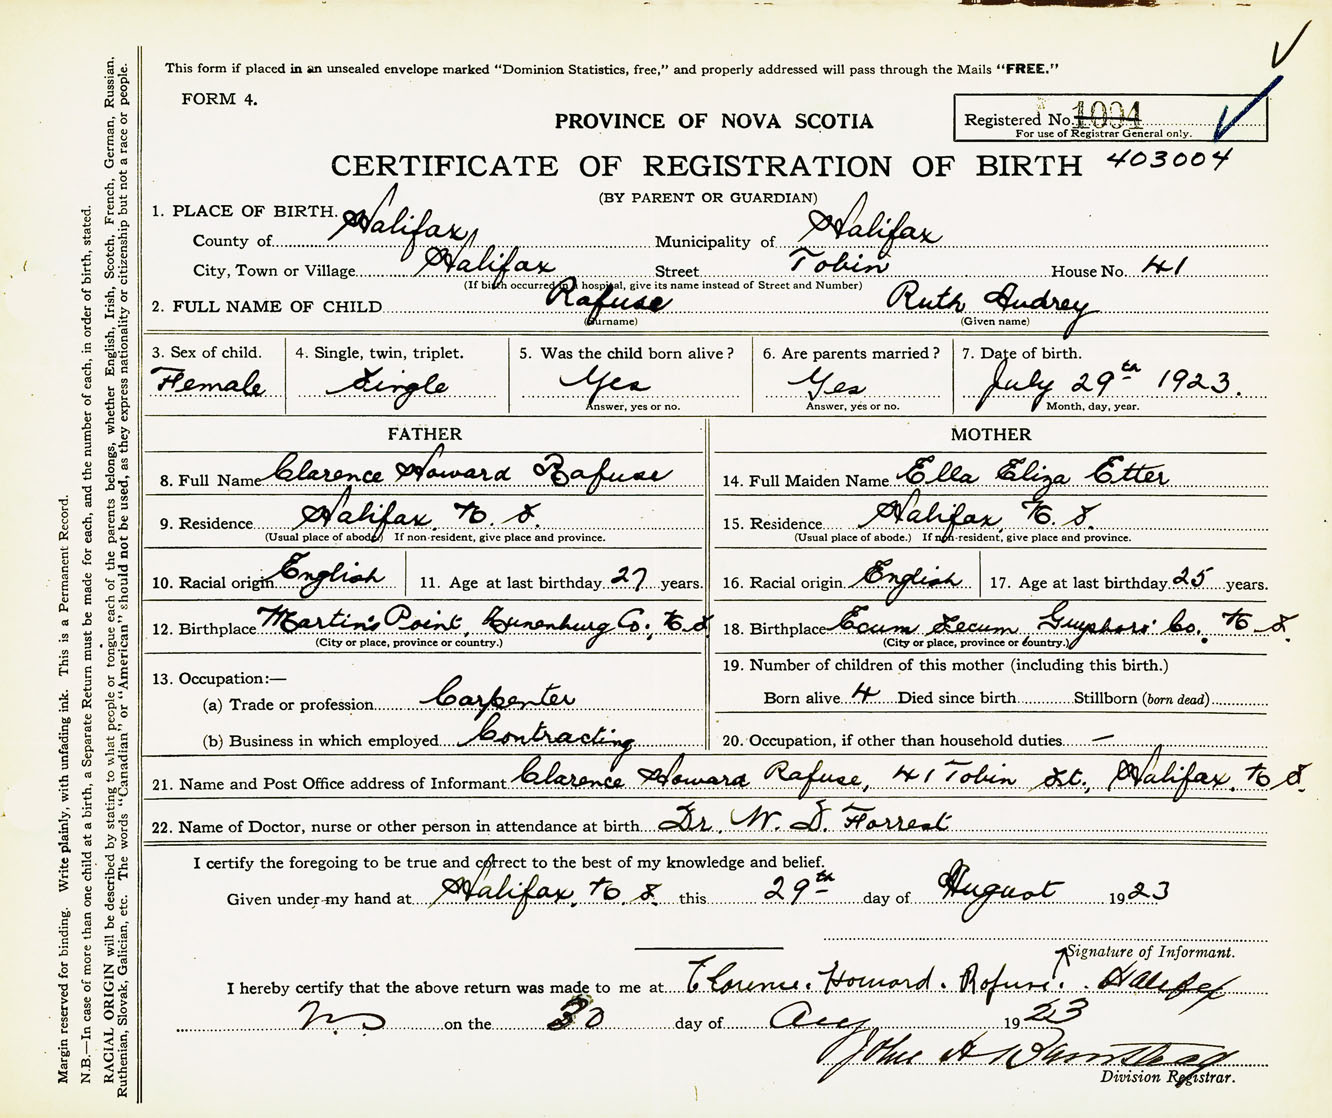 This form if placed in an unsealed envelope marked "Dominion Statistics, free," and properly addressed will pass through the Mails "FREE."
FORM 4.
Registered No. 1094
For use of Registrar General only.
PROVINCE OF NOVA SCOTIA
CERTIFICATE OF REGISTRATION OF BIRTH 403004
(BY PARENT OR GUARDIAN)
1. PLACE OF BIRTH.
County of Halifax Municipality of Halifax
City, Town or Village Halifax Street Tobin House No. 41
(If birth occurred in a hospital, give its name instead of Street and Number)
2. FULL NAME OF CHILD Rafuse Ruth Audrey
(Surname) (Given name)
3. Sex of child. 4. Single, twin, triplet. 5. Was the child born alive? 6. Are parents married? 7. Date of birth.
Female Single Yes Yes July 29th 1923.
Answer, yes or no. Answer, yes or no. Month, day, year.
FATHER MOTHER
8. Full Name Clarence Howard Rafuse 14. Full Maiden Name Ella Eliza Etter
9. Residence Halifax, N. S. 15. Residence Halifax, N. S.
(Usual place of abode.) If non-resident, give place and province. (Usual place of abode.) If non-resident, give place and province.
10. Racial origin English 11. Age at last birthday 27 years. 16. Racial origin English 17. Age at last birthday 25 years.
12. Birthplace Martin's Point, Lunenburg Co., N. S. 18. Birthplace Ecum Secum Guysboro Co., N. S.
(City or place, province or country.) (City or place, province or country.)
13. Occupation:— 19. Number of children of this mother (including this birth.)
(a) Trade or profession Carpenter Born alive 4 Died since birth Stillborn (born dead)
(b) Business in which employed Contracting 20. Occupation, if other than household duties —
21. Name and Post Office address of Informant Clarence Howard Rafuse, 41 Tobin St., Halifax, N. S.
22. Name of Doctor, nurse or other person in attendance at birth Dr. W. D. Forrest
I certify the foregoing to be true and correct to the best of my knowledge and belief.
Given under my hand at Halifax, N. S. this 29th day of August 1923
Signature of Informant.
I hereby certify that the above return was made to me at Clarence. Howard. Rafuse. Halifax
N S on the 30 day of Aug 1923
John A
Division Registrar.
Margin reserved for binding. Write plainly, with unfading ink. This is a Permanent Record.
N.B.—In case of more than one child at a birth, a Separate Return must be made for each, and the number of each, in order of birth, stated.
RACIAL ORIGIN will be described by stating to what people or tongue each of the parents belongs, whether English, Irish, Scotch, French, German, Russian,
Ruthenian, Slovak, Galician, etc. The words "Canadian" or "American" should not be used, as they express nationality or citizenship but not a race or people.